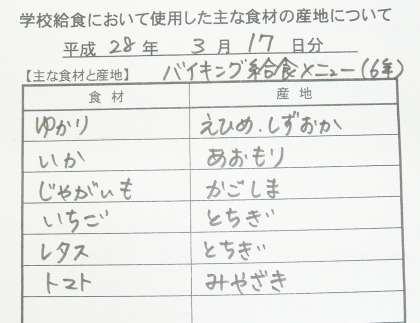 学校給食において使用した主な食材の産地について
平成 28 年 3 月 17 日分
【主な食材と産地】 バイキング給食メニュー(6年)
食材 産地
ゆかり えひめ.しずおか
いか あおもり
じゃがいも かごしま
いちご とちぎ
レタス とちぎ
トマト みやざき